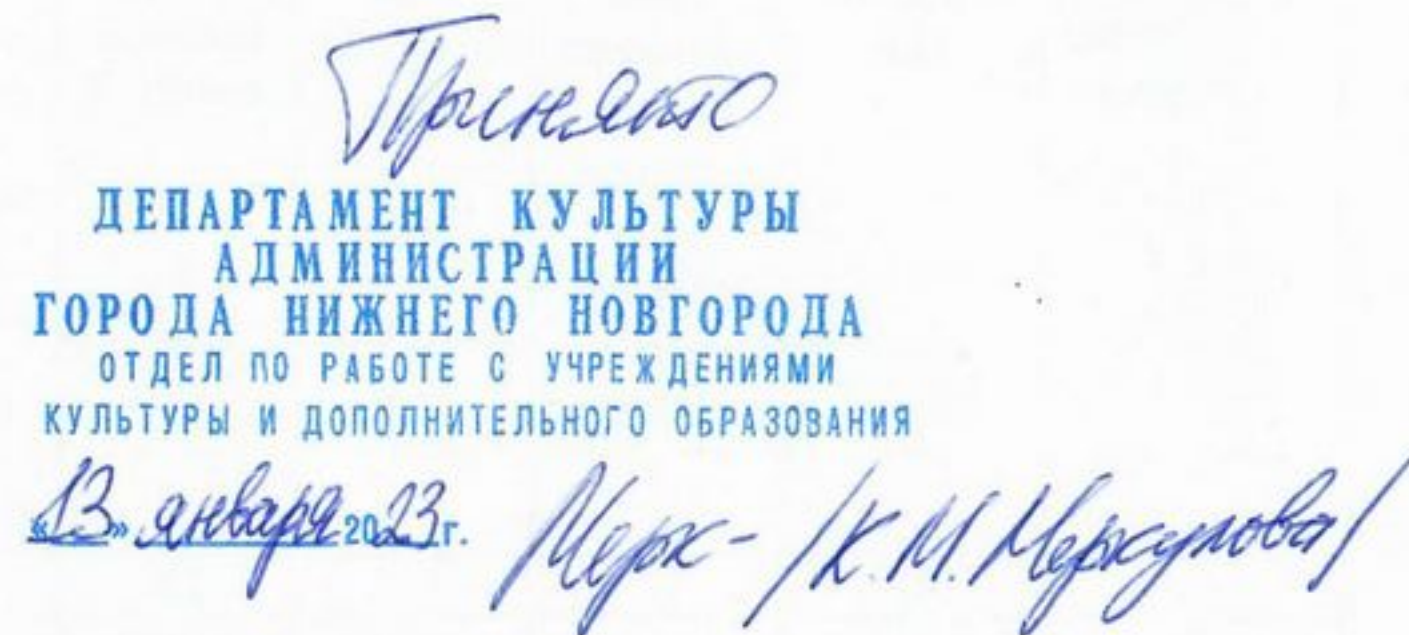 Принято
ДЕПАРТАМЕНТ КУЛЬТУРЫ
АДМИНИСТРАЦИИ
ГОРОДА НИЖНЕГО НОВГОРОДА
ОТДЕЛ ПО РАБОТЕ С УЧРЕЖДЕНИЯМИ
КУЛЬТУРЫ И ДОПОЛНИТЕЛЬНОГО ОБРАЗОВАНИЯ
«13» января 2023г. Мерк- /К.М. Меркулова/